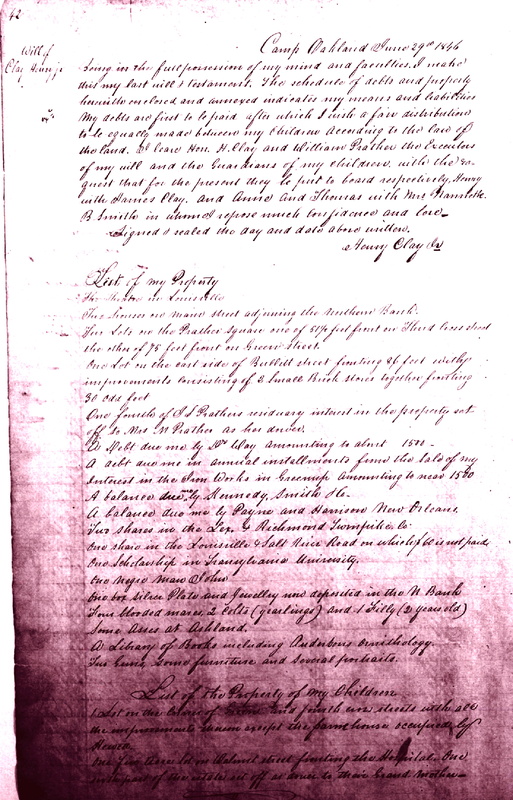 42
Will of
Clay Henry Jr
Camp Oakland June 29th 1846
Being in the full possession of my mind and faculties, I make
this my last will & testament. The schedule of debts and property
herewith enclosed and annexed indicates my means and liabilities
My debts are first to be paid after which I wish a fair distribution
to be equally made between my Children according to the law of
the land. I leave Hon. H. Clay and William Prather the Executors
of my will and the Guardians of my children, with the re-
quest that for the present they be put to board respectively, Henry
with James Clay, and Anne and Thomas with Mrs Nannette
B. Smith in whom I repose much confidence and love—
Signed & sealed the day and date above written.
Henry Clay Jr
List of my Property
The in Louisville
Two Houses on Main street adjoining the Northern Bank.
Two Lots on the Prather Square one of 51½ feet front on Third Cross street
the other of 75 feet front on Green Street.
One Lot on the east side of Bullitt street fronting 26 feet with
improvements consisting of 2 Small Brick stores together fronting
30 odd feet
One fourth of J I Prathers residuary interest in the property set
off to Mrs M Prather as her dower.
A Debt due me by Clay amounting to about 1500—
A debt due me in annual installments from the sale of my
Interest in the Iron Works in Greenup amounting to near 1500
A balance due me by Kennedy, Smith &c.
A balance due me by Payne and Harrison New Orleans.
Two shares in the Lex. & Richmond Turnpike Co.
One share in the Louisville & Salt River Road on which $60 is not paid
One Scholarship in Transylvania University.
One Negro Man John
One box Silver Plate and Jewellry now deposited in the N Bank
Four blooded mares, 2 Colts (yearlings) and 1 Filly (2 years old)
Some Asses at Ashland.
A Library of Books including Audubons Ornithology.
Two Guns, Some furniture and several portraits.
List of the Property of My Children
1 Lot on the Corner of and fourth cross streets with all
the improvements thereon except the farm house occupied by
Hewes
One five acre lot on Walnut street fronting the Hospital. One
part of the estate set off as dower to their Grand Mother—